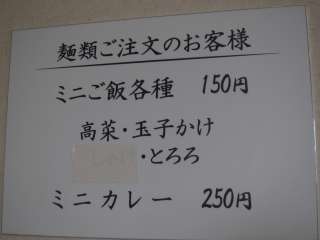 麺類ご注文のお客様
ミニご飯各種 150円
高菜・玉子かけ
・とろろ
ミニカレー 250円